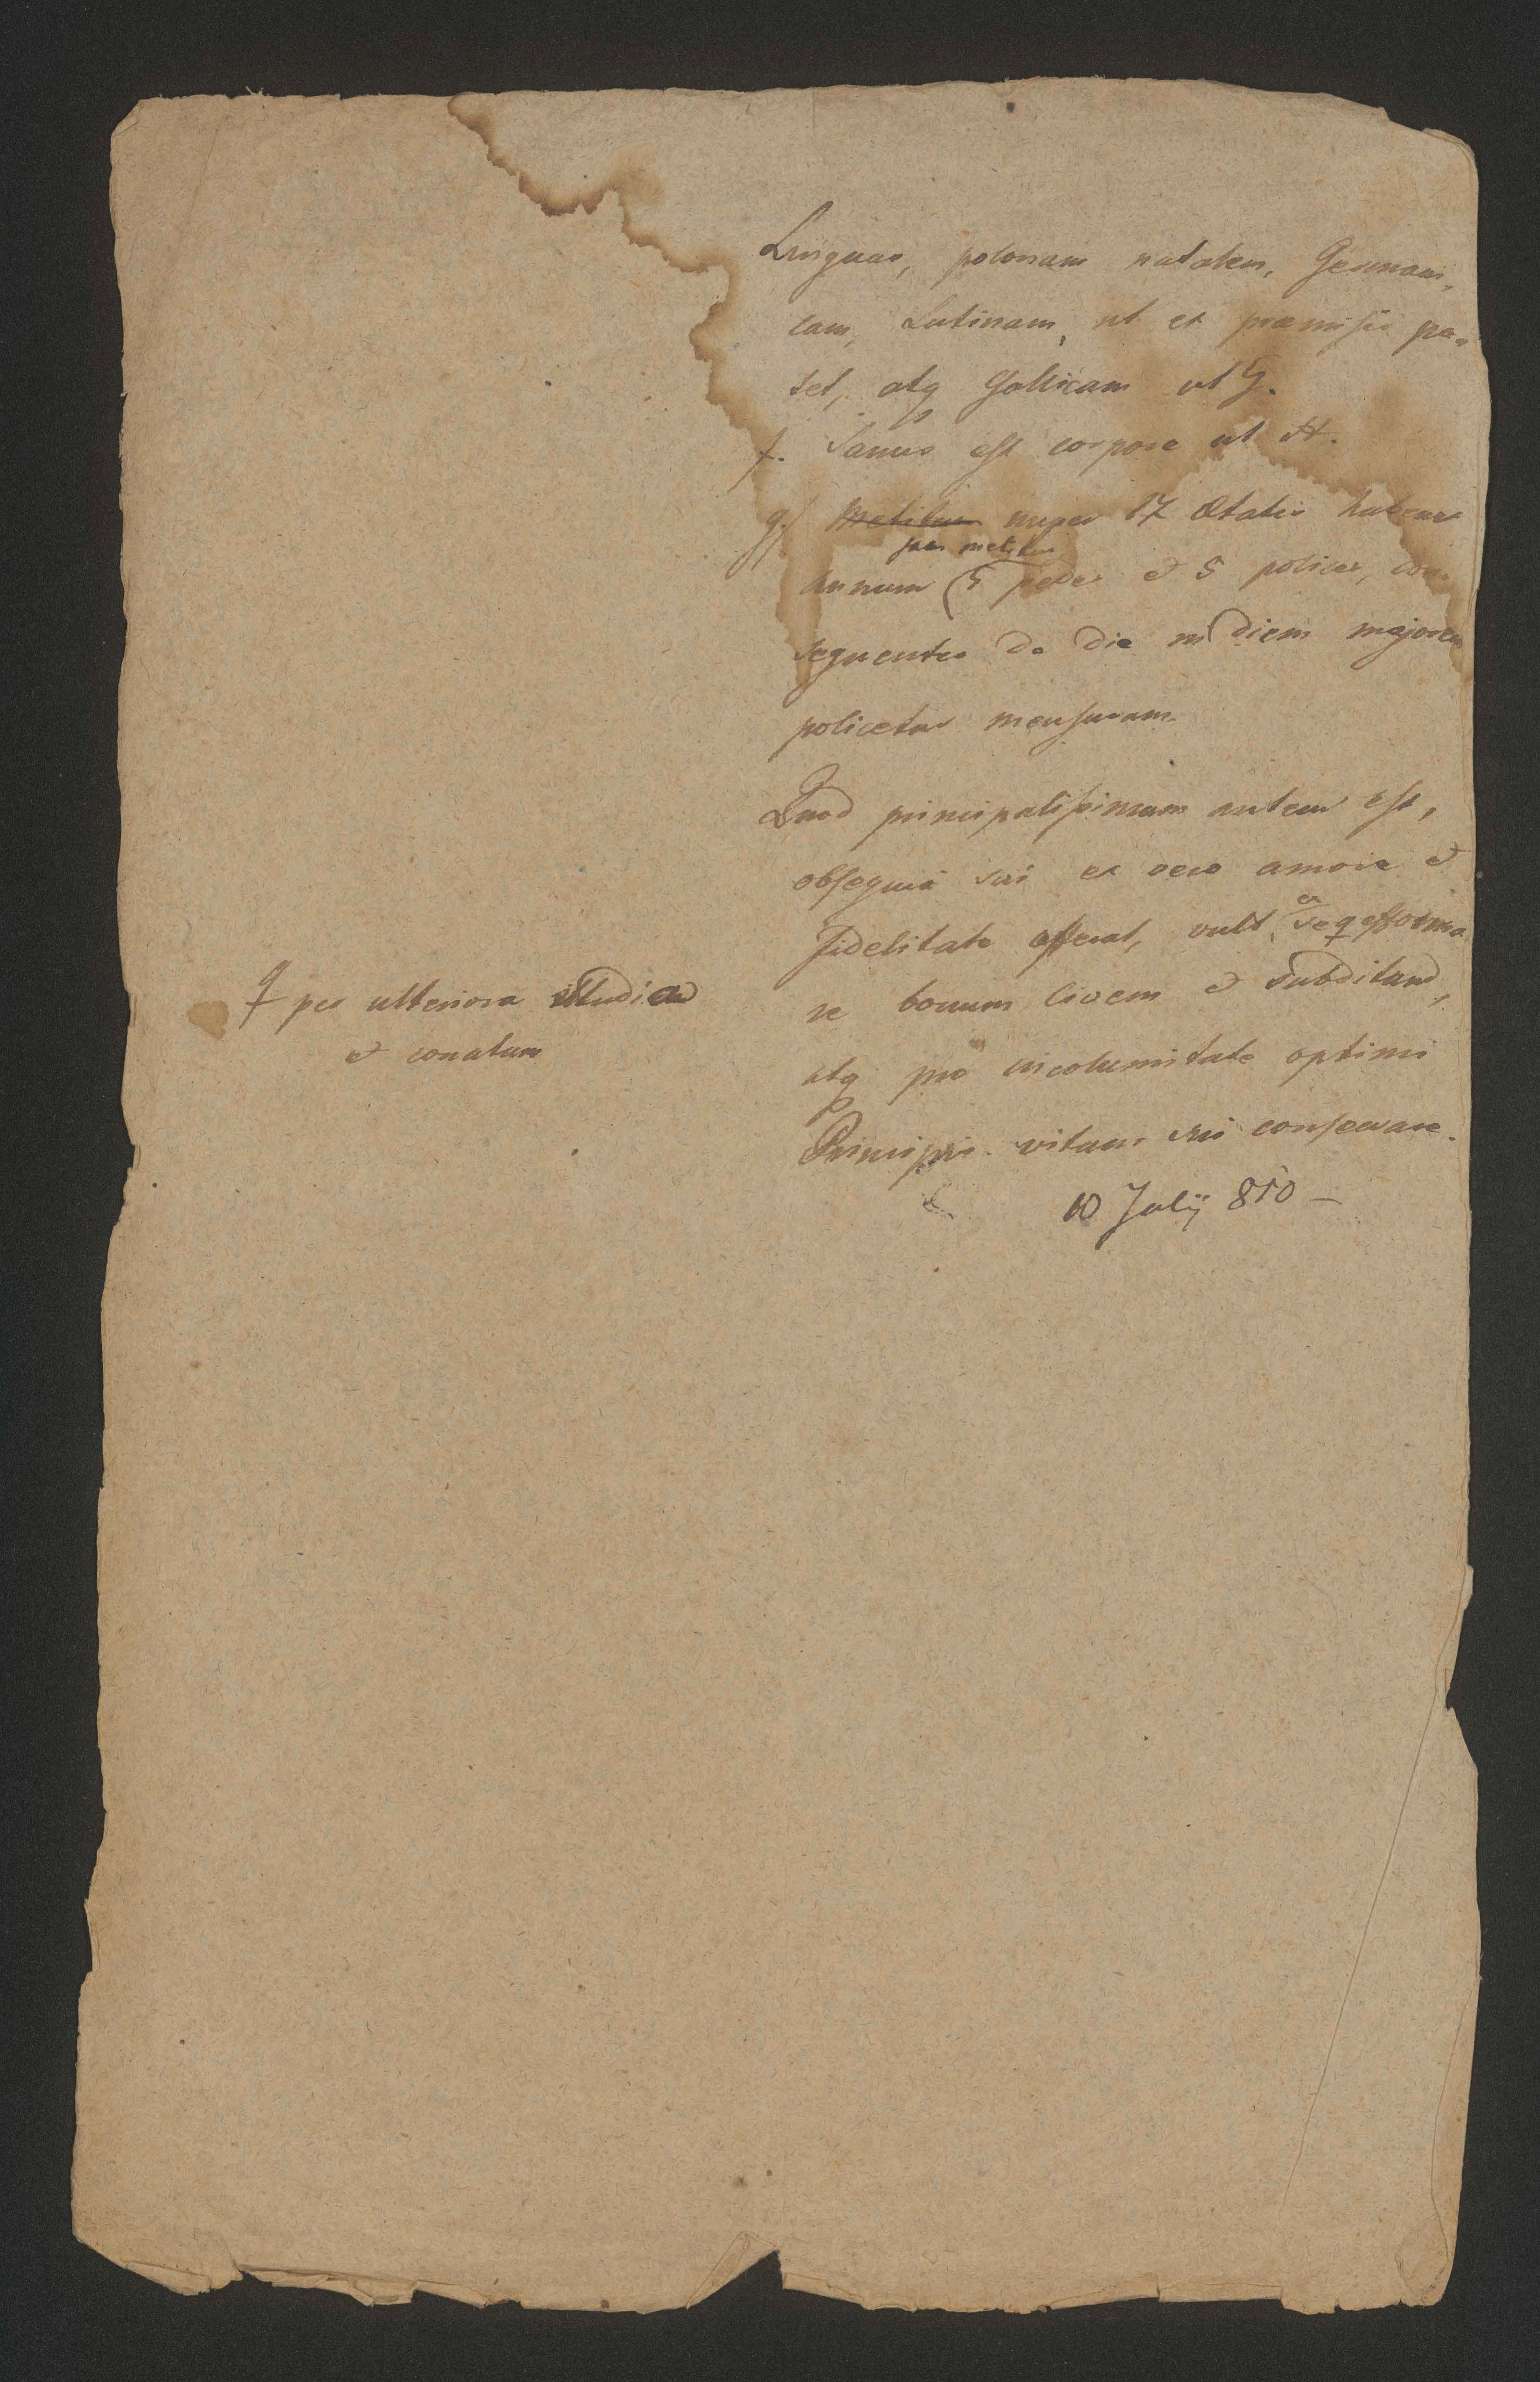 Linguas, polonam natalem, Germani-
cam, Latinam, ut ex præmissis pa-
tet, atq Gallicam ut G.
f. Sanus est corpore ut H.
g/ Metitur nuper 17 ætatis habens
jam metitur
annum 5 pedes et 5 polices, con-
sequenter de die in diem majorem
policetur mensuram.
Quod principalissimum autem est,
obsequia sui ex vero amore et
fidelitate offerat, vult, seq efforma
ex
re bonum Civem et Subditum,
atq pro incolumitate optimi
Principis vitam sui conservare.
10 Julÿ 850 –
per ulteriora studia
et conatum